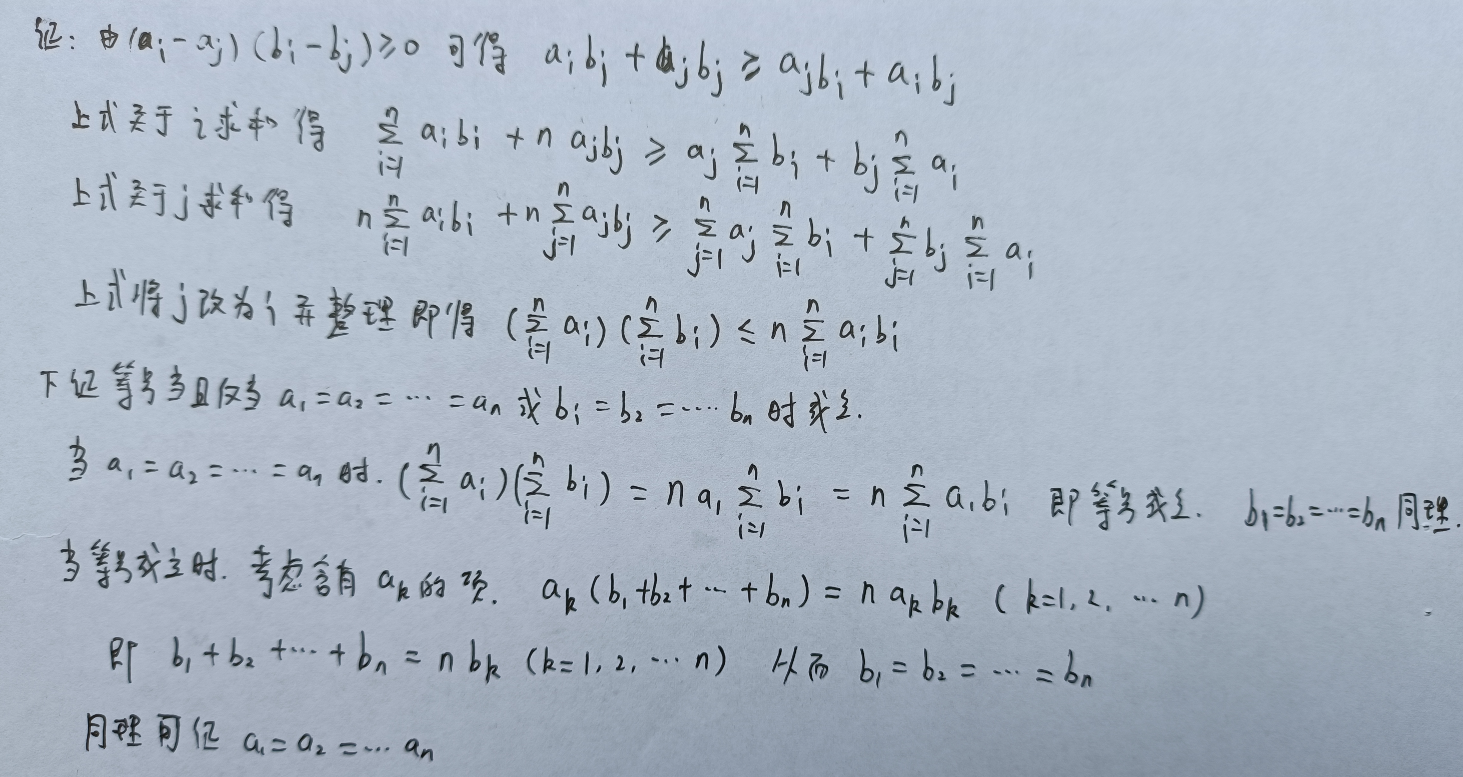 证: 由(a_i - a_j)(b_i - b_j) ≥ 0 可得 a_i b_j + a_j b_j ≥ a_j b_i + a_i b_j
上式关于 i 求和得 \sum_{i=1}^{n} a_i b_i + n a_j b_j ≥ a_j \sum_{i=1}^{n} b_i + b_j \sum_{i=1}^{n} a_i
上式关于 j 求和得 n \sum_{i=1}^{n} a_i b_i + n \sum_{j=1}^{n} a_j b_j ≥ \sum_{j=1}^{n} a_j \sum_{i=1}^{n} b_i + \sum_{j=1}^{n} b_j \sum_{i=1}^{n} a_i
上式将 j 改为 i 并整理即得 (\sum_{i=1}^{n} a_i)(\sum_{i=1}^{n} b_i) ≤ n \sum_{i=1}^{n} a_i b_i
下证等号当且仅当 a_1 = a_2 = ⋯ = a_n 或 b_i = b_2 = ⋯ b_n 时成立.
当 a_1 = a_2 = ⋯ = a_n 时. (\sum_{i=1}^{n} a_i)(\sum_{i=1}^{n} b_i) = n a_1 \sum_{i=1}^{n} b_i = n \sum_{i=1}^{n} a_i b_i 即等号成立. b_1 = b_2 = ⋯ = b_n 同理.
当等号成立时. 考虑含有 a_k 的项. a_k (b_1 + b_2 + ⋯ + b_n) = n a_k b_k (k=1, 2, ⋯ n)
即 b_1 + b_2 + ⋯ + b_n = n b_k (k=1, 2, ⋯ n) 从而 b_1 = b_2 = ⋯ = b_n
同理可证 a_1 = a_2 = ⋯ a_n